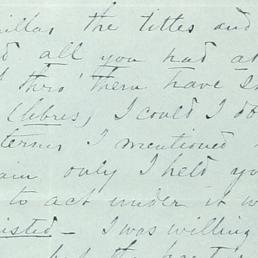 the titles and
all you had at
thro' them have
(libres) I could I
I mentioned
only I held yo
to act under it w
isted - I was willing